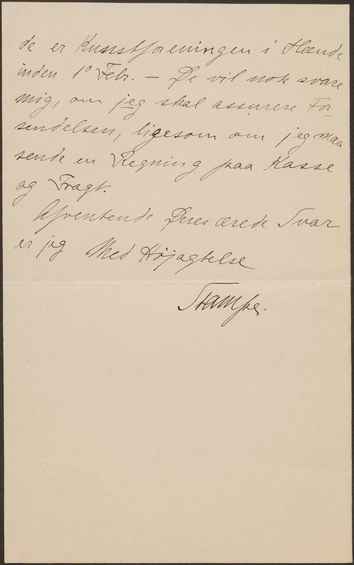 de er Kunstforeningen i Hænde
inden 1º Febr. — De vil nok svare
mig, om jeg skal assurere For
sendelsen, ligesom om jeg maa
sende en Regning paa Kasse
og Fragt.
Afventende Deres ærede Svar
er jeg Med Højagtelse
Stampe.